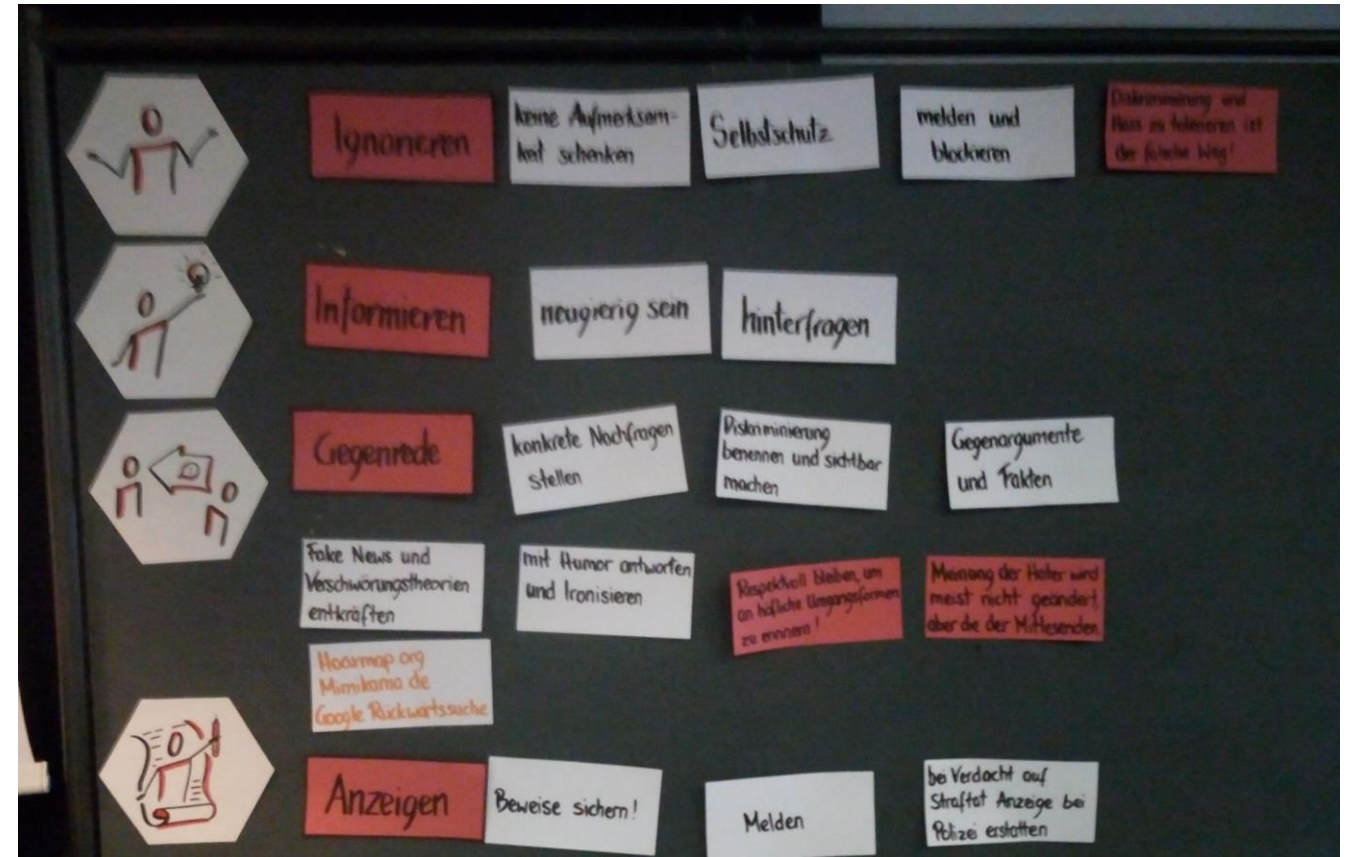 Ignorieren
keine Aufmerksam-
keit schenken
Selbstschutz
melden und
blockieren
Diskriminierung und
Hass zu tolerieren ist
der falsche Weg!
Informieren
neugierig sein
hinterfragen
Gegenrede
konkrete Nachfragen
stellen
Diskriminierung
benennen und sichtbar
machen
Gegenargumente
und Fakten
Fake News und
Verschwörungstheorien
entkräften
mit Humor antworten
und Ironisieren
Respektvoll bleiben, um
an höfliche Umgangsformen
zu erinnern!
Meinung der Hater wird
meist nicht geändert,
aber die der Mitlesenden
Hoaxmap.org
Mimikama.de
Google Rückwärtssuche
Anzeigen
Beweise sichern!
Melden
bei Verdacht auf
Straftat Anzeige bei
Polizei erstatten